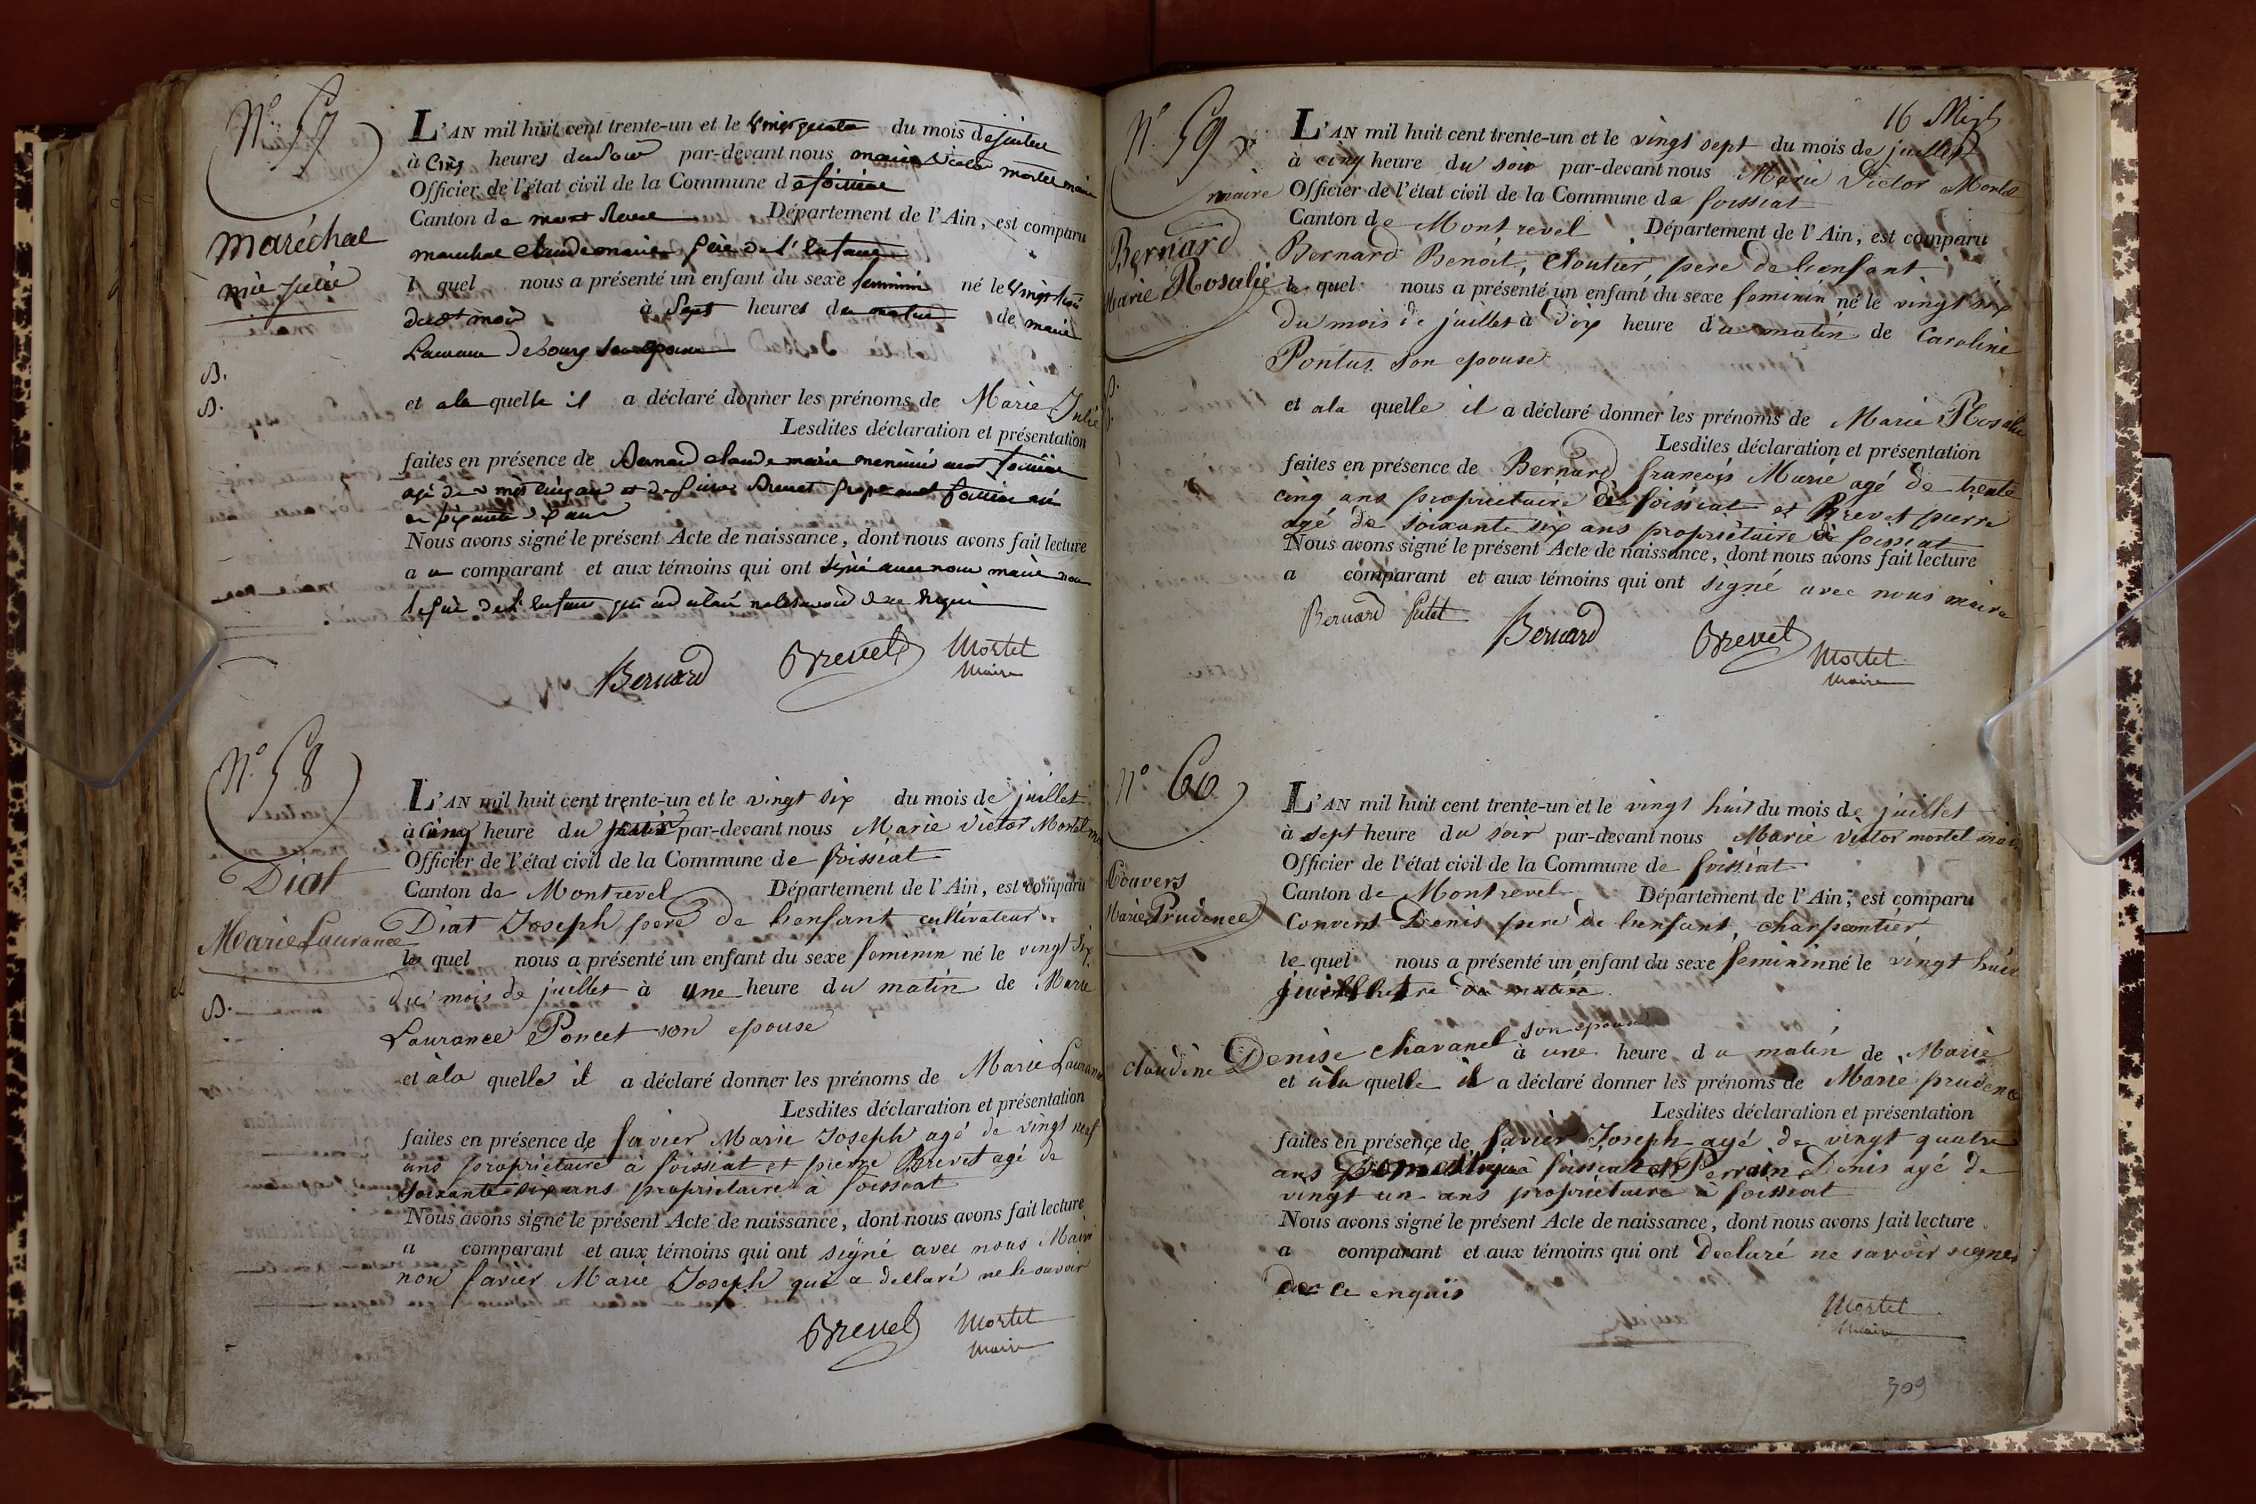 N° 57
Maréchal
mie julie
B.
B.
L'AN mil huit cent trente-un et le vingt quatre du mois de juillet
à Cinq heures du Soir par-devant nous marie Victor mortel maire
Officier de l'état civil de la Commune de foissiat
Canton de mont Revel Département de l'Ain, est comparu
marechal claude marie père de l'enfant
l quel nous a présenté un enfant du sexe feminin né le vingt
dudt mois à Sept heures du matin de marie
Laurance debourg son epouse
et ala quelle il a déclaré donner les prénoms de Marie Julie
Lesdites déclaration et présentation
faites en présence de Bernard claude marie menuisier aud foissiat
agé de vingt cinq ans et de pierre Brevet propre aud foissiat agé
de soixante six ans
Nous avons signé le présent Acte de naissance, dont nous avons fait lecture
a u comparant et aux témoins qui ont signé avec nous maire non
le père de l'enfant qui a déclaré ne le savoir de ce requi
Bernard Brevet Mortel
Maire
N° 58
Diat
Marie Laurance
B.
L'AN mil huit cent trente-un et le vingt six du mois de juillet
à Cinq heure du par-devant nous Marie Victor Mortel ma
Officier de l'état civil de la Commune de foissiat
Canton de Montrevel Département de l'Ain, est comparu
Diat Joseph pere de l'enfant cultivateur
le quel nous a présenté un enfant du sexe feminin né le vingt six
du mois de juillet à une heure du matin de Marie
Laurance Poncet son epouse
et àla quelle il a déclaré donner les prénoms de Marie Laurance
Lesdites déclaration et présentation
faites en présence de favier Marie Joseph agé de vingt neuf
ans propriétaire à foissiat et pierre Brevet agé de
soixante six ans propriétaire à foissiat
Nous avons signé le présent Acte de naissance, dont nous avons fait lecture
a comparant et aux témoins qui ont signé avec nous Maire
non favier Marie Joseph qui a declaré ne le savoir
Brevet Mortel
Maire
16 
N° 59
Bernard
Marie Rosalie
L'AN mil huit cent trente-un et le vingt sept du mois de juillet
à cinq heure du soir par-devant nous Marie Victor Mortel
maire Officier de l'état civil de la Commune de foissiat
Canton de Montrevel Département de l'Ain, est comparu
Bernard Benoit, cloutier, pere de l'enfant
le quel nous a présenté un enfant du sexe feminin né le vingt six
du mois de juillet à dix heure du matin de Caroline
Pontus son epouse
et ala quelle il a déclaré donner les prénoms de Marie Rosalie
Lesdites déclaration et présentation
faites en présence de Bernard françois Marie agé de trente
cinq ans propriétaire de foissiat et Brevet pierre
agé de soixante six ans propriétaire de foissiat
Nous avons signé le présent Acte de naissance, dont nous avons fait lecture
a comparant et aux témoins qui ont signé avec nous maire
Bernard Bernard Brevet Mortel
Maire
N° 60
Convers
Marie Prudence
L'AN mil huit cent trente-un et le vingt huit du mois de juillet
à sept heure du soir par-devant nous Marie victor mortel maire
Officier de l'état civil de la Commune de foissiat
Canton de Montrevel Département de l'Ain, est comparu
Convert Denis pere de l'enfant, charpantier
le quel nous a présenté un enfant du sexe feminin né le vingt huit
juillet
claudine Denise Chavanel son epouse
à une heure du matin de Marie
et àla quelle il a déclaré donner les prénoms de Marie prudence
Lesdites déclaration et présentation
faites en présence de favier Joseph agé de vingt quatre
ans Domestique à foissiat et Perrain Denis agé de
vingt un ans propriétaire à foissiat
Nous avons signé le présent Acte de naissance, dont nous avons fait lecture
a comparant et aux témoins qui ont declaré ne savoir signer
de ce enquis
Mortel
Maire
309